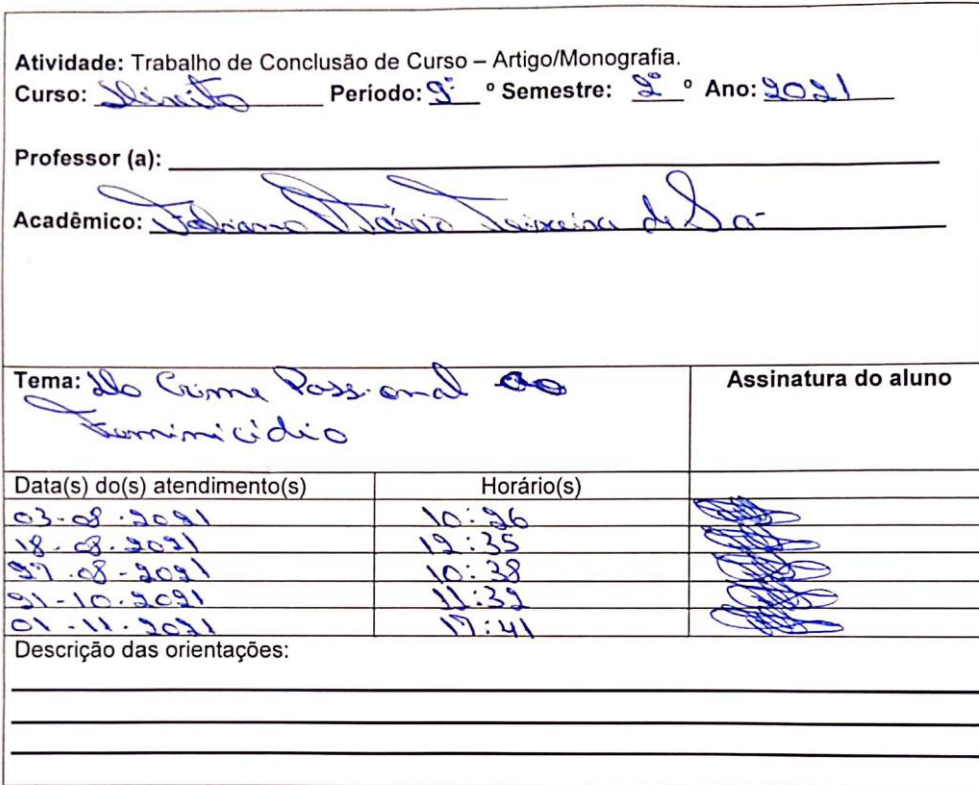 Atividade: Trabalho de Conclusão de Curso – Artigo/Monografia.
Curso: Direito Período: 9° º Semestre: 2° º Ano: 2021
Professor (a):
Acadêmico: Fabiano Teixeira de Sá
Tema: Do Crime Passional ao Assinatura do aluno
Feminicídio
Data(s) do(s) atendimento(s) Horário(s)
03-08-2021 10:26
18-08-2021 12:35
27-08-2021 10:38
21-10-2021 11:32
01-11-2021 17:41
Descrição das orientações: